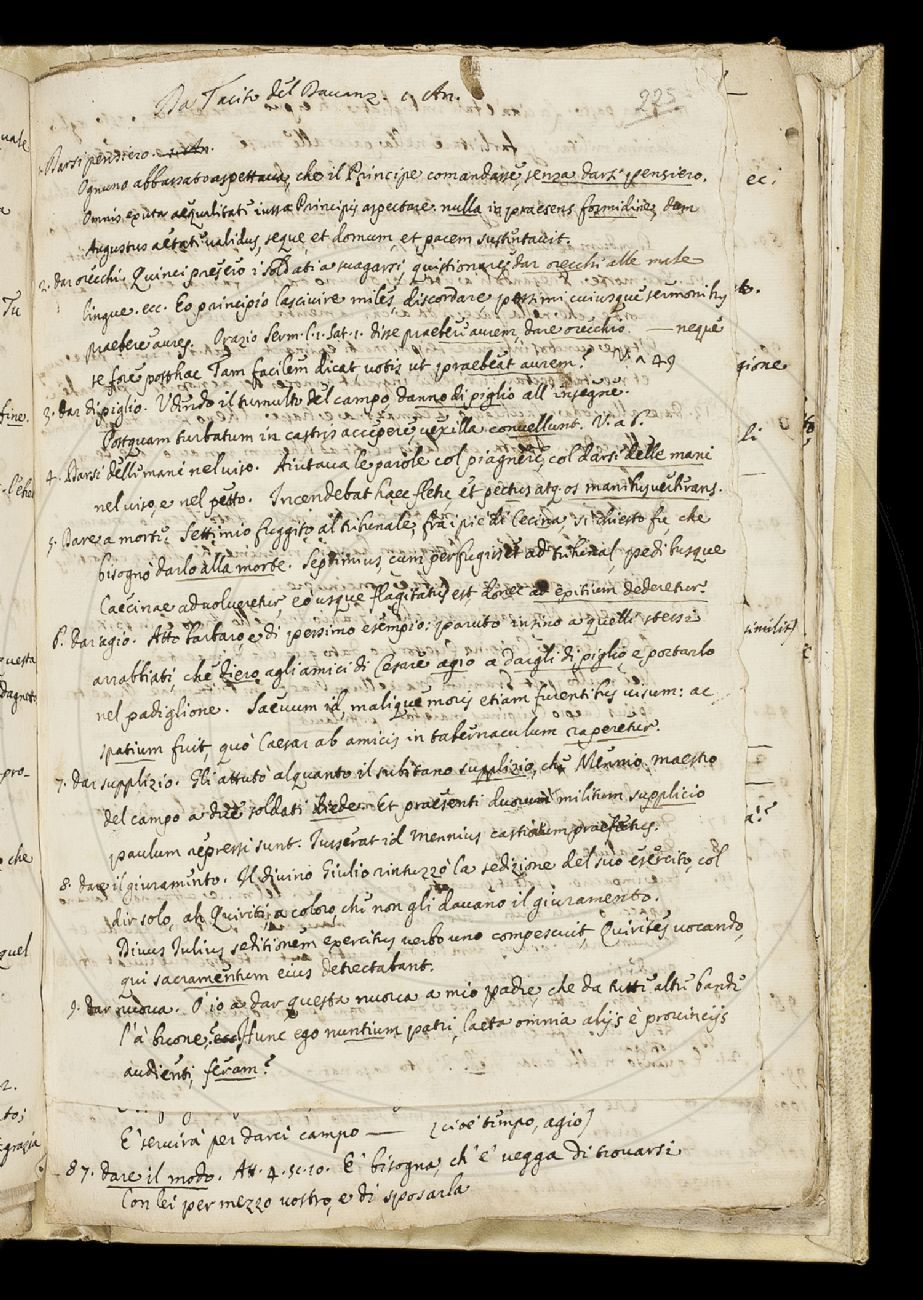 Da Tacito del Davanz. 1 An.
225
Darsi pensiero. 1. An.
Ognuno abbassato aspettava, che il Principe comandasse, senza darsi pensiero.
Omnis exuta aequalitate iussa Principis aspectare. nulla in praesens formidine, dum
Augustus aetate validus, seque, et domum, et pacem sustentavit.
2. dar orecchi. Quinci presero i soldati a svagarsi, quistionare, dar orecchi alle male
lingue. ecc. Eo principio lascivire miles, discordare, pessimi cuiusque sermonibus
praebere aures. Orazio Serm. l. 1. Sat. 1. disse praebere aurem, dare orecchio. — neque
se fore posthac Tam facilem dicat, votis ut praebeat aurem? V. n 49
3. dar di piglio. Udendo il tumulto del campo danno di piglio all insegne.
Postquam turbatum in castris accepere, vexilla convellunt. V. n 6.
4. Darsi delli mani nel viso. Aiutava le parole col piagnere, col darsi delle mani
nel viso, e nel petto. Incendebat haec fletu, et pectus atq. os manibus verberans.
5. Dare a morte. Settimio fuggito al tribunale, fra i piè di Cecina, sì chiesto fu, che
bisognò darlo alla morte. Septimius, cum perfugisset ad tribunal, pedibusque
Caecinae advolveretur, eo usque flagitatus est donec ad exitium dederetur.
6. dar agio. Atto barbaro, e di pessimo esempio: paruto insino a quelli stessi
arrabbiati, che diero agli amici di Cesare agio a dargli di piglio, e portarlo
nel padiglione. Saevum id, malique moris etiam furentibus visum: ac
spatium fuit, quo Caesar ab amicis in tabernaculum raperetur.
7. dar supplizio. Gli attutò alquanto il subitano supplizio, che Mennio maestro
del campo a due soldati diede. Et praesenti duorum militum supplicio
paulum repressi sunt. Iusserat id Mennius castrorum praefectus.
8. dare il giuramento. Il divino Giulio rintuzzò la sedizione del suo esercito, col
dir solo, ah Quiriti, a coloro, che non gli davano il giuramento.
Divus Iulius seditionem exercitus verbo uno compescuit, Quirites vocando,
qui sacramentum eius detrectabant.
9. dar nuova. O io a dar questa nuova a mio padre, che da tutti altri bandi
l'à buone, Hunc ego nuntium patri, laeta omnia alijs è provincijs
audienti, feram?
E' servirà per darci campo — [cioè tempo, agio]
87. dare il modo. At. 4. sc. 10. E' bisogna, ch'e' vegga di trovarsi
Con lei per mezzo vostro, e di sposarla